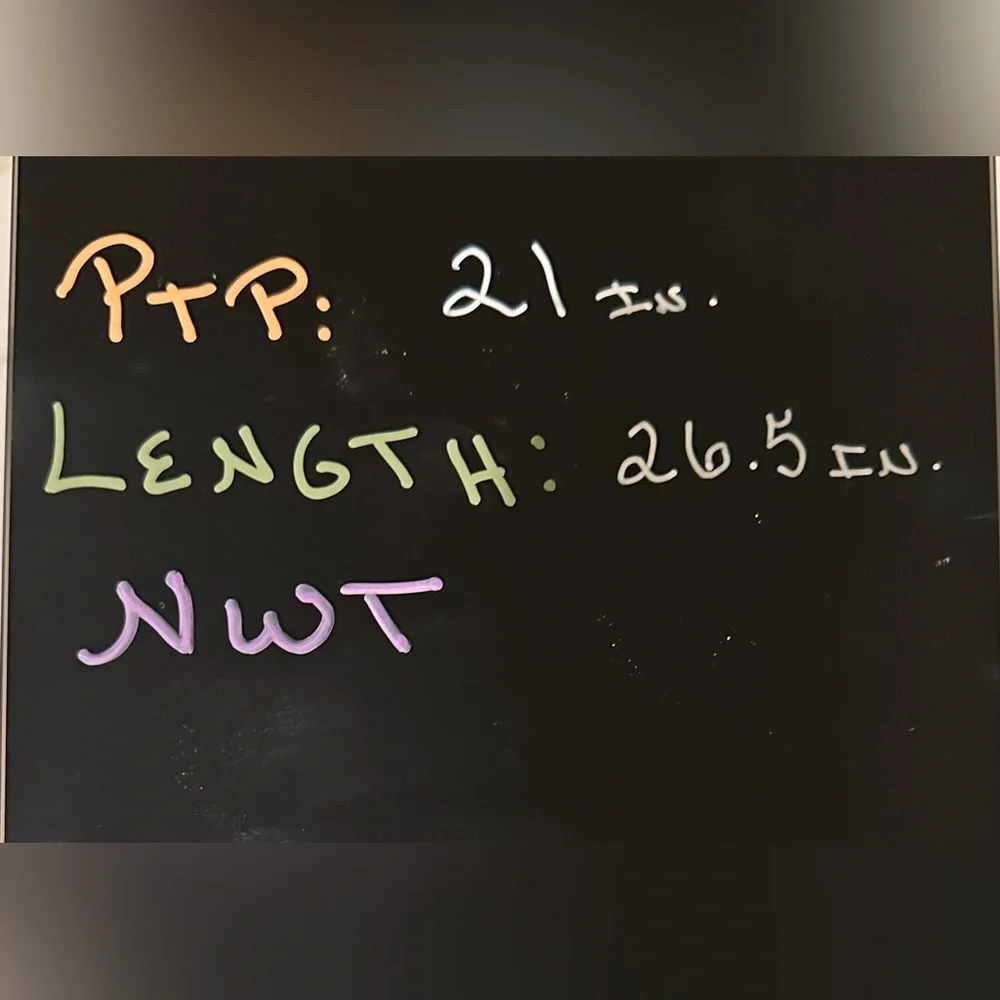 PTP: 21 IN.
LENGTH: 26.5 IN.
NWT